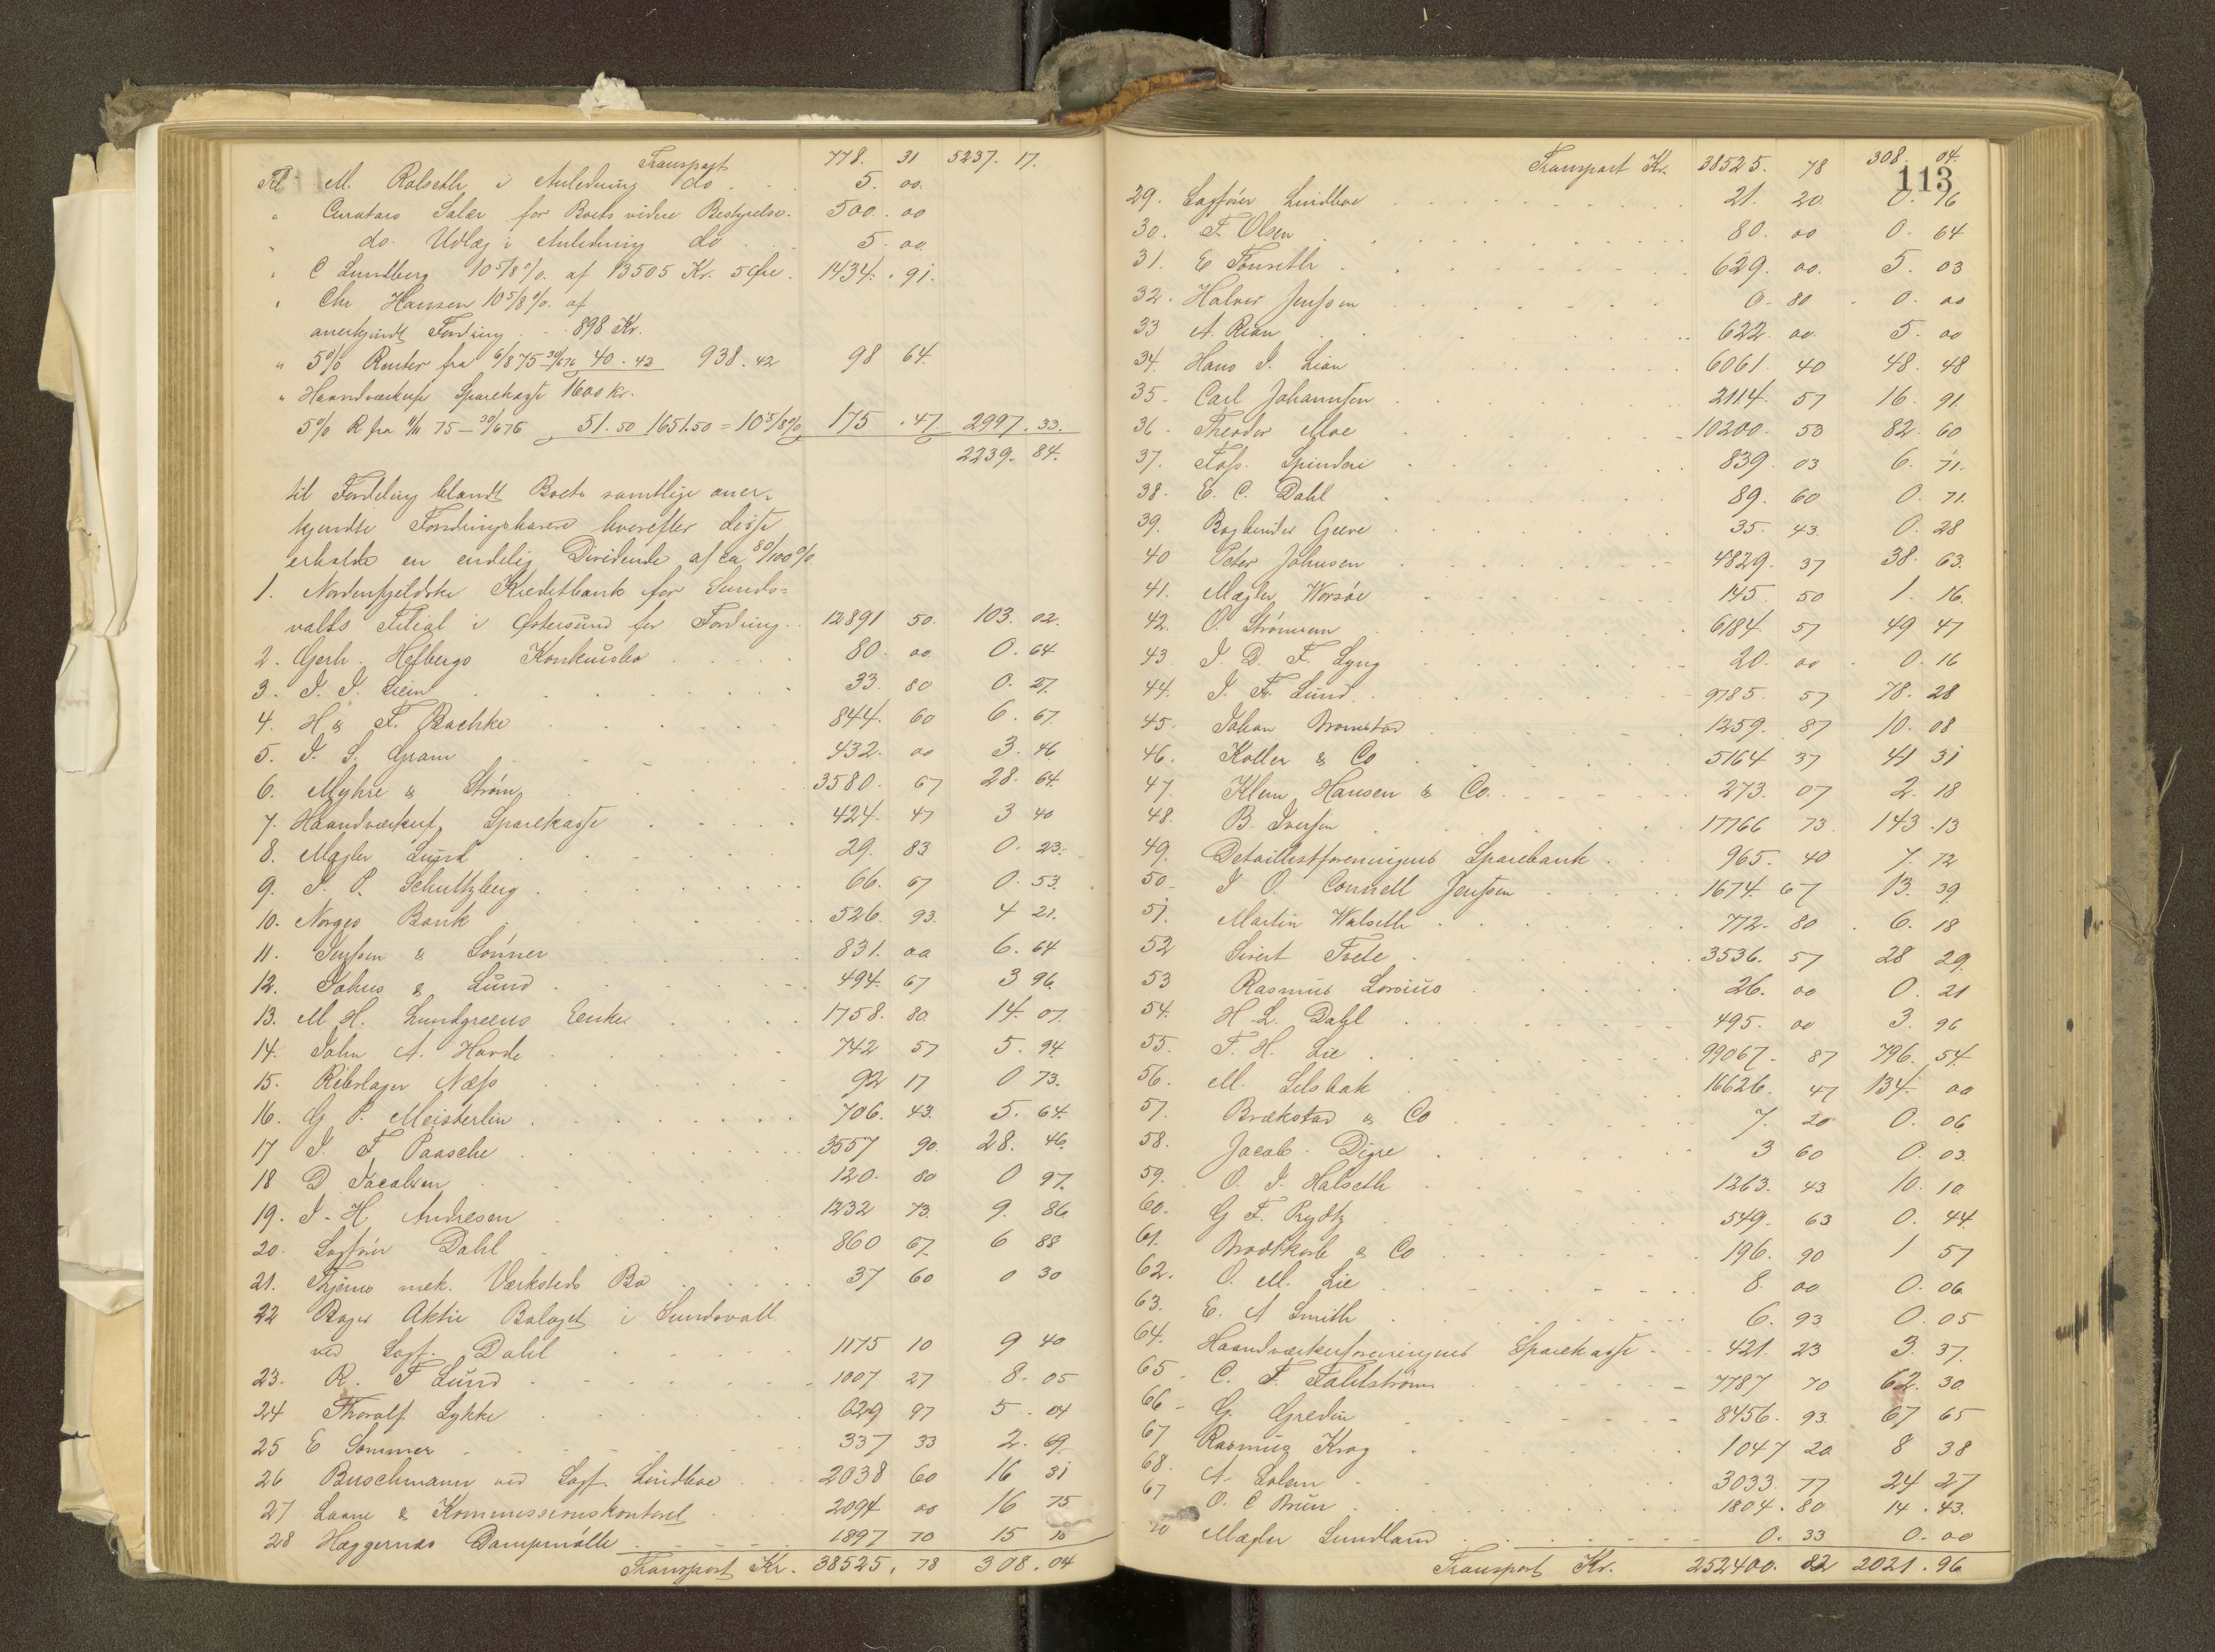 Transport 778. 31 5237. 17.
Til M. Rolseth i Anledning do 5. 00.
" Curators Salær for Boets videre Bestyrelse. 500. 00
" do. Udlæg i Anledning do 5. 00.
" C Lundberg 10 5/8 %. af 13505 Kr. 5 Øre. 1434. 91.
" Chr Hansen 10 5/8 %. af
anerkjendt Fordring 898 Kr.
" 5% Renter fra 6/8 75 - 30/6 76 40. 42 938. 42 98 64.
" Haandværkerf. Sparekasse 1600 Kr.
5% R fra 9/11 75 — 30/6 76 51. 50 1651.50 = 10 5/8 % 175. 47. 2997. 33.
2239. 84.
til Fordeling blandt Boets samtlige aner-
kjendte Fordringshavere hvorefter disse
erholde en endelig Dividende af ca 80/100 %
1. Nordenfjeldske Kreditbank for Sunds-
valls Filial i Østersund for Fordring. 12891 50. 103. 02.
2. Gerh. Hefbergs Konkursbo 80. 00 0. 64
3. I. I. Liein 33. 80 0. 27.
4. H & F. Bachke 844. 60 6. 67.
5. I. S. Gram 432. 00 3. 46
6. Myhre & Strøm 3580. 67 28. 64.
7. Haandværkerf. Sparekasse 424. 47 3 40
8. Mægler Lund 29. 83 0. 23.
9. I. P. Schultzberg 66. 67 0. 53.
10. Norges Bank 526. 93. 4 21.
11. Jenssen & Sønner 831. 00 6. 64
12. Johns & Lund 494. 67 3 96
13. M. H. Lundgreens Enke 1758. 80 14. 07.
14. John A. Harde 742 57 5. 94
15. Rebslager Næss 92 17 0 73.
16. G P. Meisterlin 706. 43. 5. 64.
17 I. F. Paasche 3557 90. 28. 46.
18 D Jacobsen 120. 80 0 97.
19. I. H. Andresen 1232 73. 9. 86
20. Sagfører Dahl 860 67 6 88
21. Thjems mek. Værksteds Bo 37 60 0 30
22 Bager Aktie Bolaget i Sundsvall
ved Sagf. Dahl 1175 10 9 40
23. R. F Lund 1007 27 8. 05
24 Thoralf Lykke 629 97 5. 04
25 E Sommer 337 33 2. 69
26 Buschmann ved Sagf. Lindboe 2038 60 16 31
27 Laane & Kommissionskontoret 2094 00 16 75
28 Heggernæs Dampmølle 1897 70 15 10
Transport Kr. 38525. 78 308. 04
Transport Kr. 38525. 78 308. 04.
113
29. Sagfører Lindboe 21. 20. 0. 16
30. F. Olsen 80. 00 0. 64
31. E Fonseth 629. 00. 5. 03
32. Halvor Jenssen 0. 80 0. 00
33 A. Rian 622. 00. 5. 00
34. Hans I. Lian 6061. 40 48. 48
35. Carl Johannsen 2114. 57 16. 91.
36. Theodor Moe 10200. 53 82. 60
37. Foss. Spinderi 839. 03 6. 71.
38. E. C. Dahl 89. 60 0. 71.
39. Bogbinder Greve 35. 43. 0. 28
40 Peter Johnsen 4829. 37 38. 63.
41. Mægler Worsøe 145. 50 1. 16.
42. O. Strømsem 6184. 57 49 47
43 I. D. F. Lyng 20. 00 0. 16
44. I. Fr Lund 9785. 57 78. 28
45. Johan Bromstad 1259. 87 10. 08
46. Koller & Co 5164 37 41 31
47. Klem Hansen & Co. 273. 07 2. 18
48. B. Iversen 17766 73 143. 13
49. Detaillistforeningens Sparebank 965. 40 7. 72
50. I O. Connell Jenssen 1674. 67 13. 39.
51. Martin Walseth 772. 80 6. 18
52 Sivert Tvete 3536. 57 28 29.
53 Rasmus Lossius 26. 00 0. 21
54. H. L. Dahl 495. 00 3. 96
55. F. H. Lie 99067. 87 796. 54.
56. M. Selsbak 16626. 47 134. 00
57. Brækstad & Co 7. 20 0. 06
58. Jacob Digre 3 60 0. 03.
59. O. I. Halseth 1263. 43 10. 10
60. G F. Prydtz 549. 63 0. 44.
61. Brodtkorb & Co 196. 90 1 57
62. O. M. Lie 8. 00 0. 06
63. E. A Smith 6. 93 0. 05
64. Haandværkerforeningens Sparekasse 421. 23 3. 37.
65. C. F. Fahlstrøm 7787 70 62. 30.
66. G. Gredin 8456. 93. 67 65
67 Rasmus Krag 1047 20 8 38
68. A. Solem 3033. 77 24 27
67 O. C Bruun 1804. 80 14. 43.
70 Mægler Sundland 0. 33 0. 00
Transport Kr. 252400. 82 2021. 96